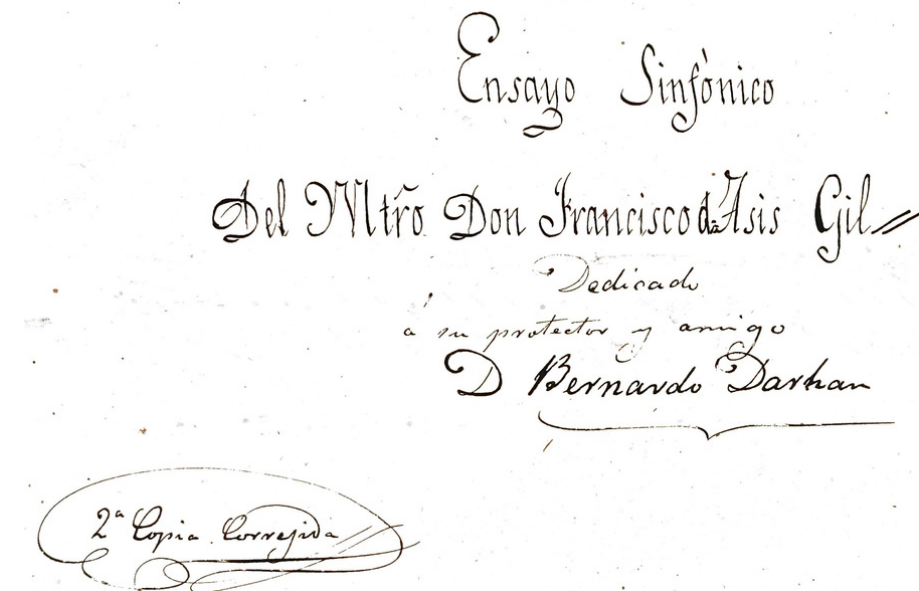 Ensayo Sinfònico
Del Mtr̃o Don Francisco de Asis Gil
Dedicado
á su protector y amigo
D Bernardo Darhan
2ª Copia Correjida